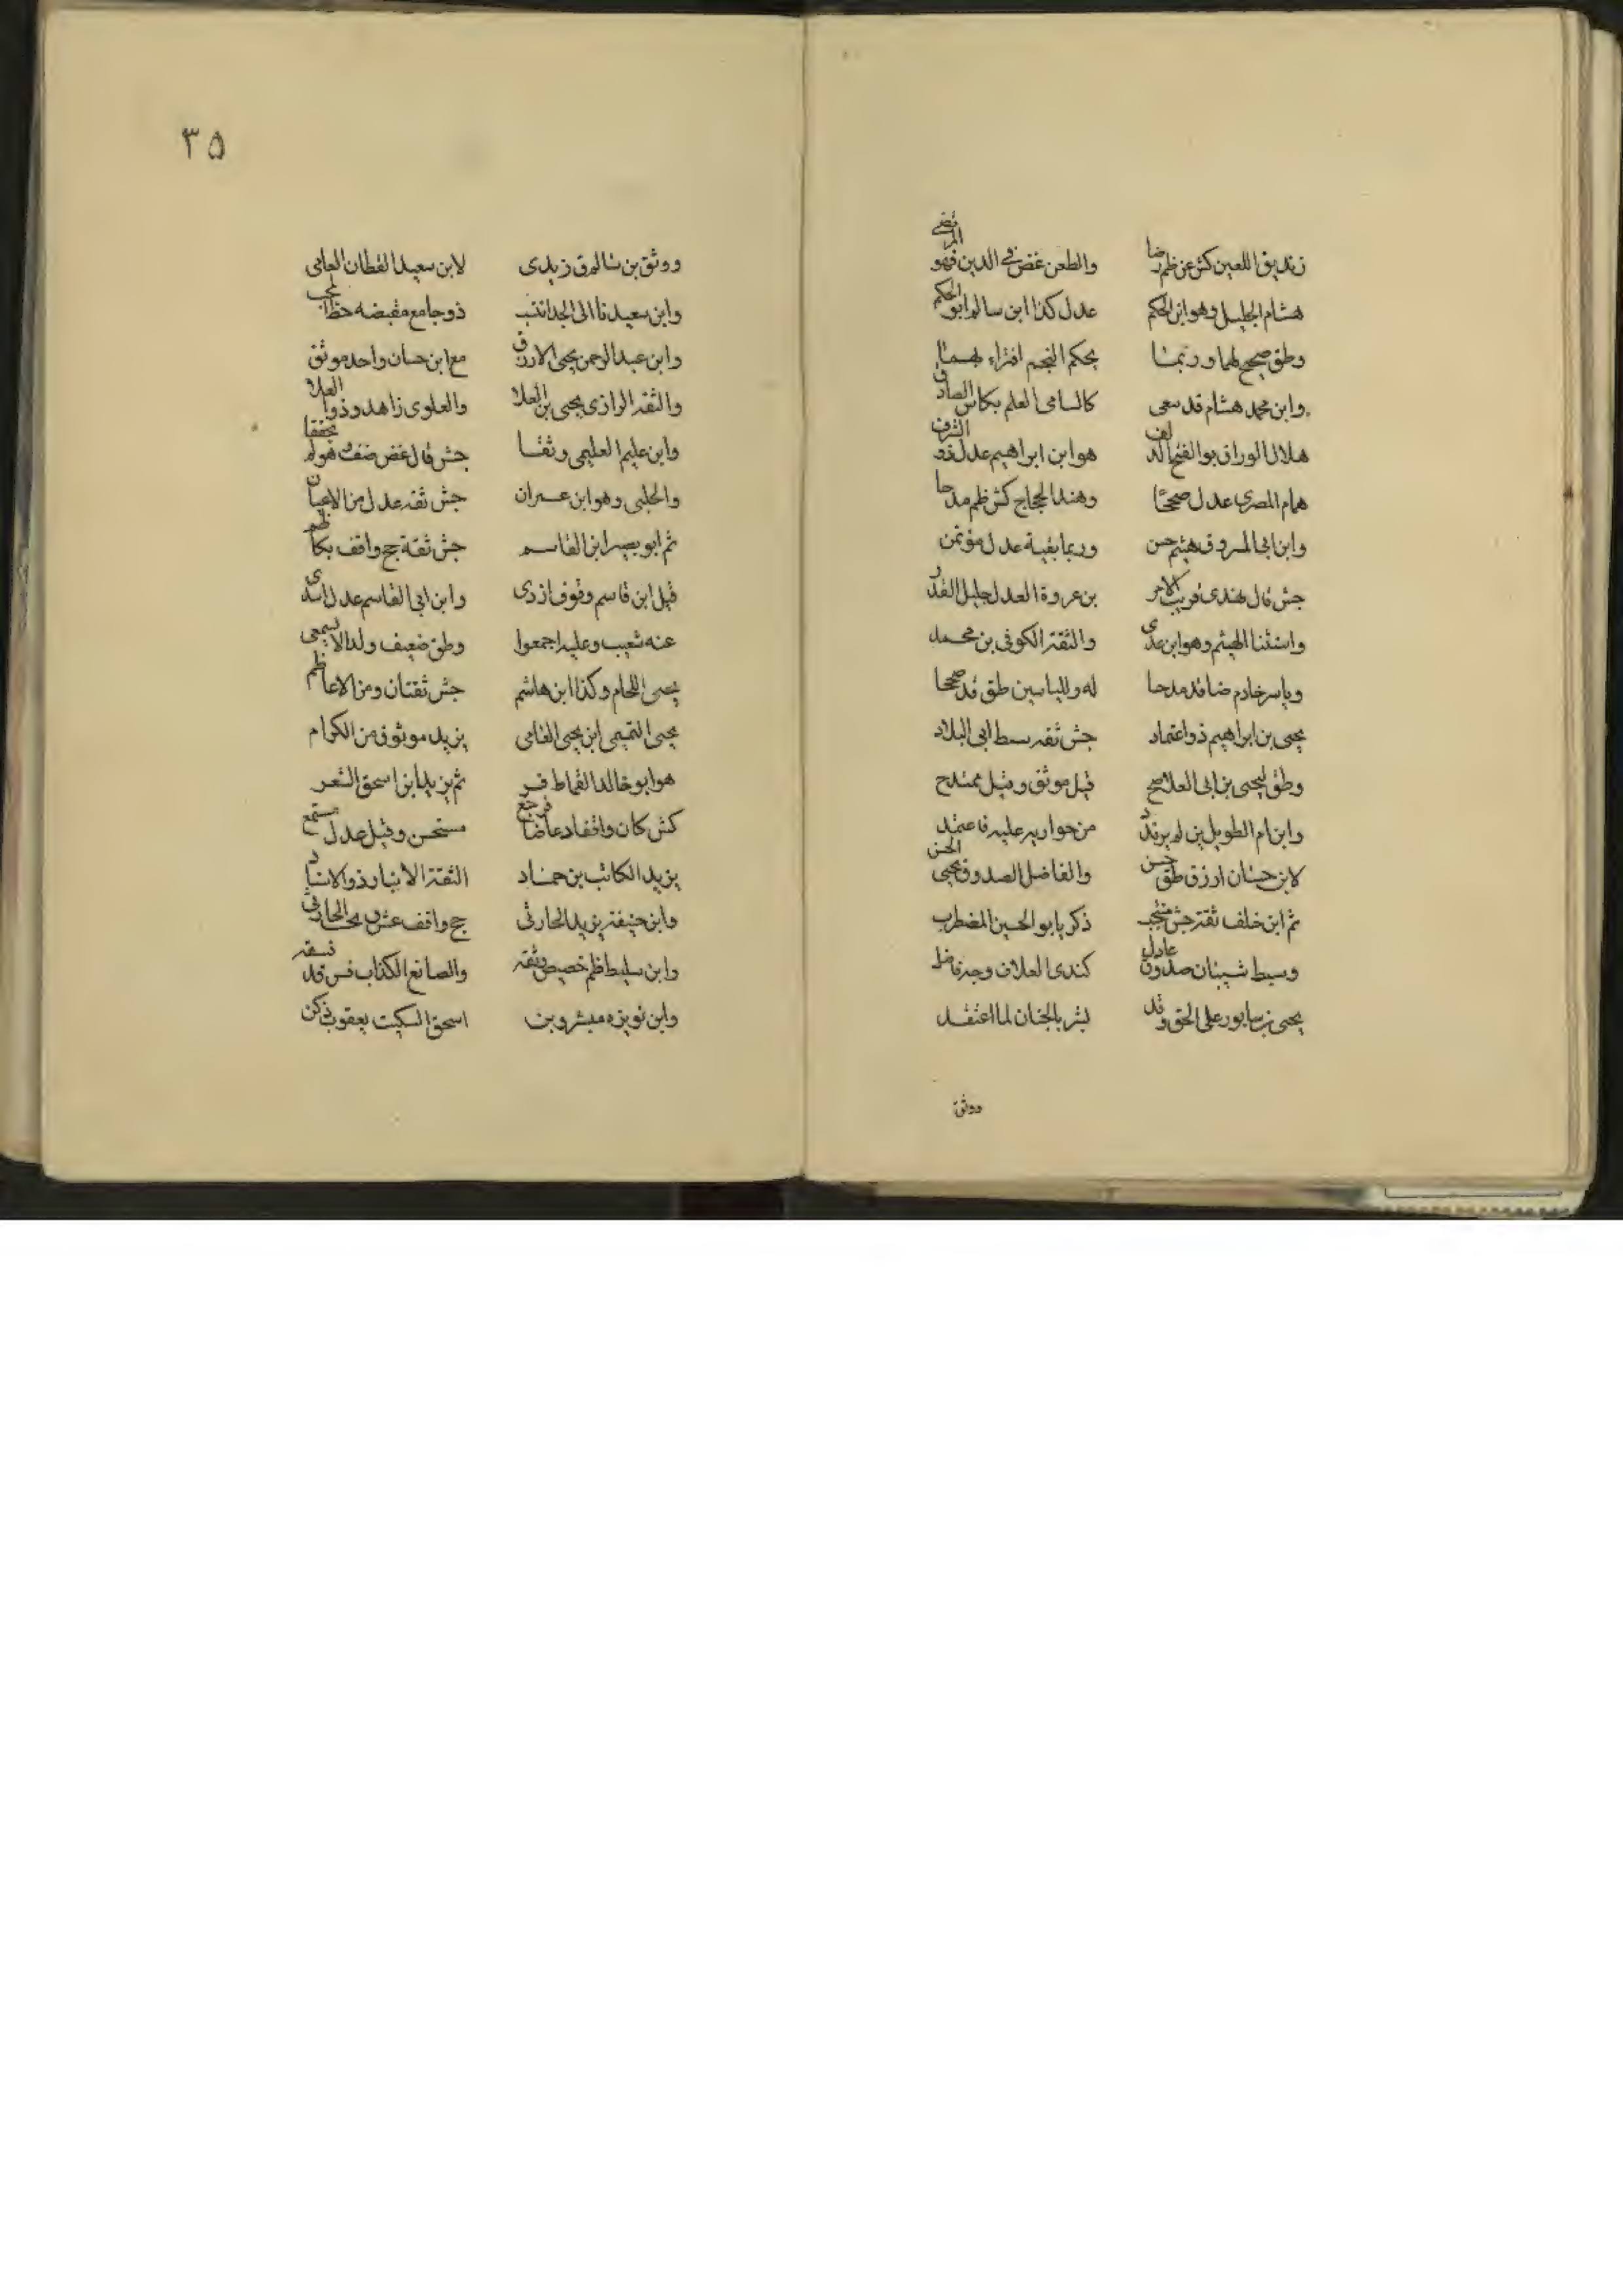 زنديق اللعين كش عن ظم رضا والطعن غض في الدين فهو المرتضى
هشام الجليل وهو ابن الحكم عدل كذا ابن سالم ابو الحكم
وطق صحيح لهما وربما بحكم النجم افتراء بهما
وابن محمد هشام قد سعى كالسامى العلم بكاس الصادق
هلال الوراق بو الفتح هو ابن ابراهيم عدل
همام المصرى عدل صححا وهند الحجاج كش ظم مدحا
وابن ابى المسروق هيثم حسن وربما بقية عدل مؤتمن
جش قال نهدى قريب الامر بن عروة العدل جليل القدر
واستثنا الهيثم وهو ابن عدى والثقة الكوفى بن محمد
وياسر خادم ضا قد مدحا له ولياسين طق قد صححا
يحيى بن ابراهيم ذو اعتماد جش ثقه سبط ابى البلاد
وطق ليحيى بن ابى العلا صح قيل موثق وقيل ممتدح
وابن ام الطويل من لم يرتد من حواريه عليه فاعتمد
لابن حسان ازرق طق حسن والفاضل الصدوق يحيى الحسن
ثم ابن خلف ثقة جش ذكر يا بو الحسين المضطرب
وسيط شيبنان صدوق عادل كندى العلاف وجه فاضل
يحيى بن سابور على الحق وقد بشر بالجنان لما اعتقد
ووثق
٣٥
ووثق بن سالم ق زيدى لابن سعيد القطان العامى
وابن سعيد نا الى الجد انتسب ذو جامع مقبضه
وابن عبد الرحمن يحيى الازرق مع ابن حسان واحد موثق
والثقه الرازى يحيى بن العلا والعلوى زاهد وذو العلا
وابن عليم العليمى وثقا جش قال غض ضعف
والحلبى وهو ابن عمران جش ثقه عدل من الاعيان
ثم ابو بصير ابن القاسم جش ثقة جخ واقف بكاظم
قيل ابن قاسم وقوف ازدى وابن ابى القاسم عدل اسدى
عنه شعيب وعليه اجمعوا وطق ضعيف ولد الا يسمعى
يحيى اللحام وكذا ابن هاشم جش ثقتان ومن الاعاظم
يحيى التميمى ابن يحيى العامى يزيد موثوق من الكرام
هو ابو خالد القماط قر ثم يزيد ابن اسحق الشعر
كش كان واقفا دعا ضا فرجع مستحسن وقيل عدل
يزيد الكاتب بن حماد الثقة الانبار ذو الاسناد
وابن حنيفة يزيد الحارثى جخ واقف
وابن سليط ظم خصيص وثقه والصانع الكذاب قد فسقه
وابن نويزه مبشر وبن اسحق السكيت يعقوب